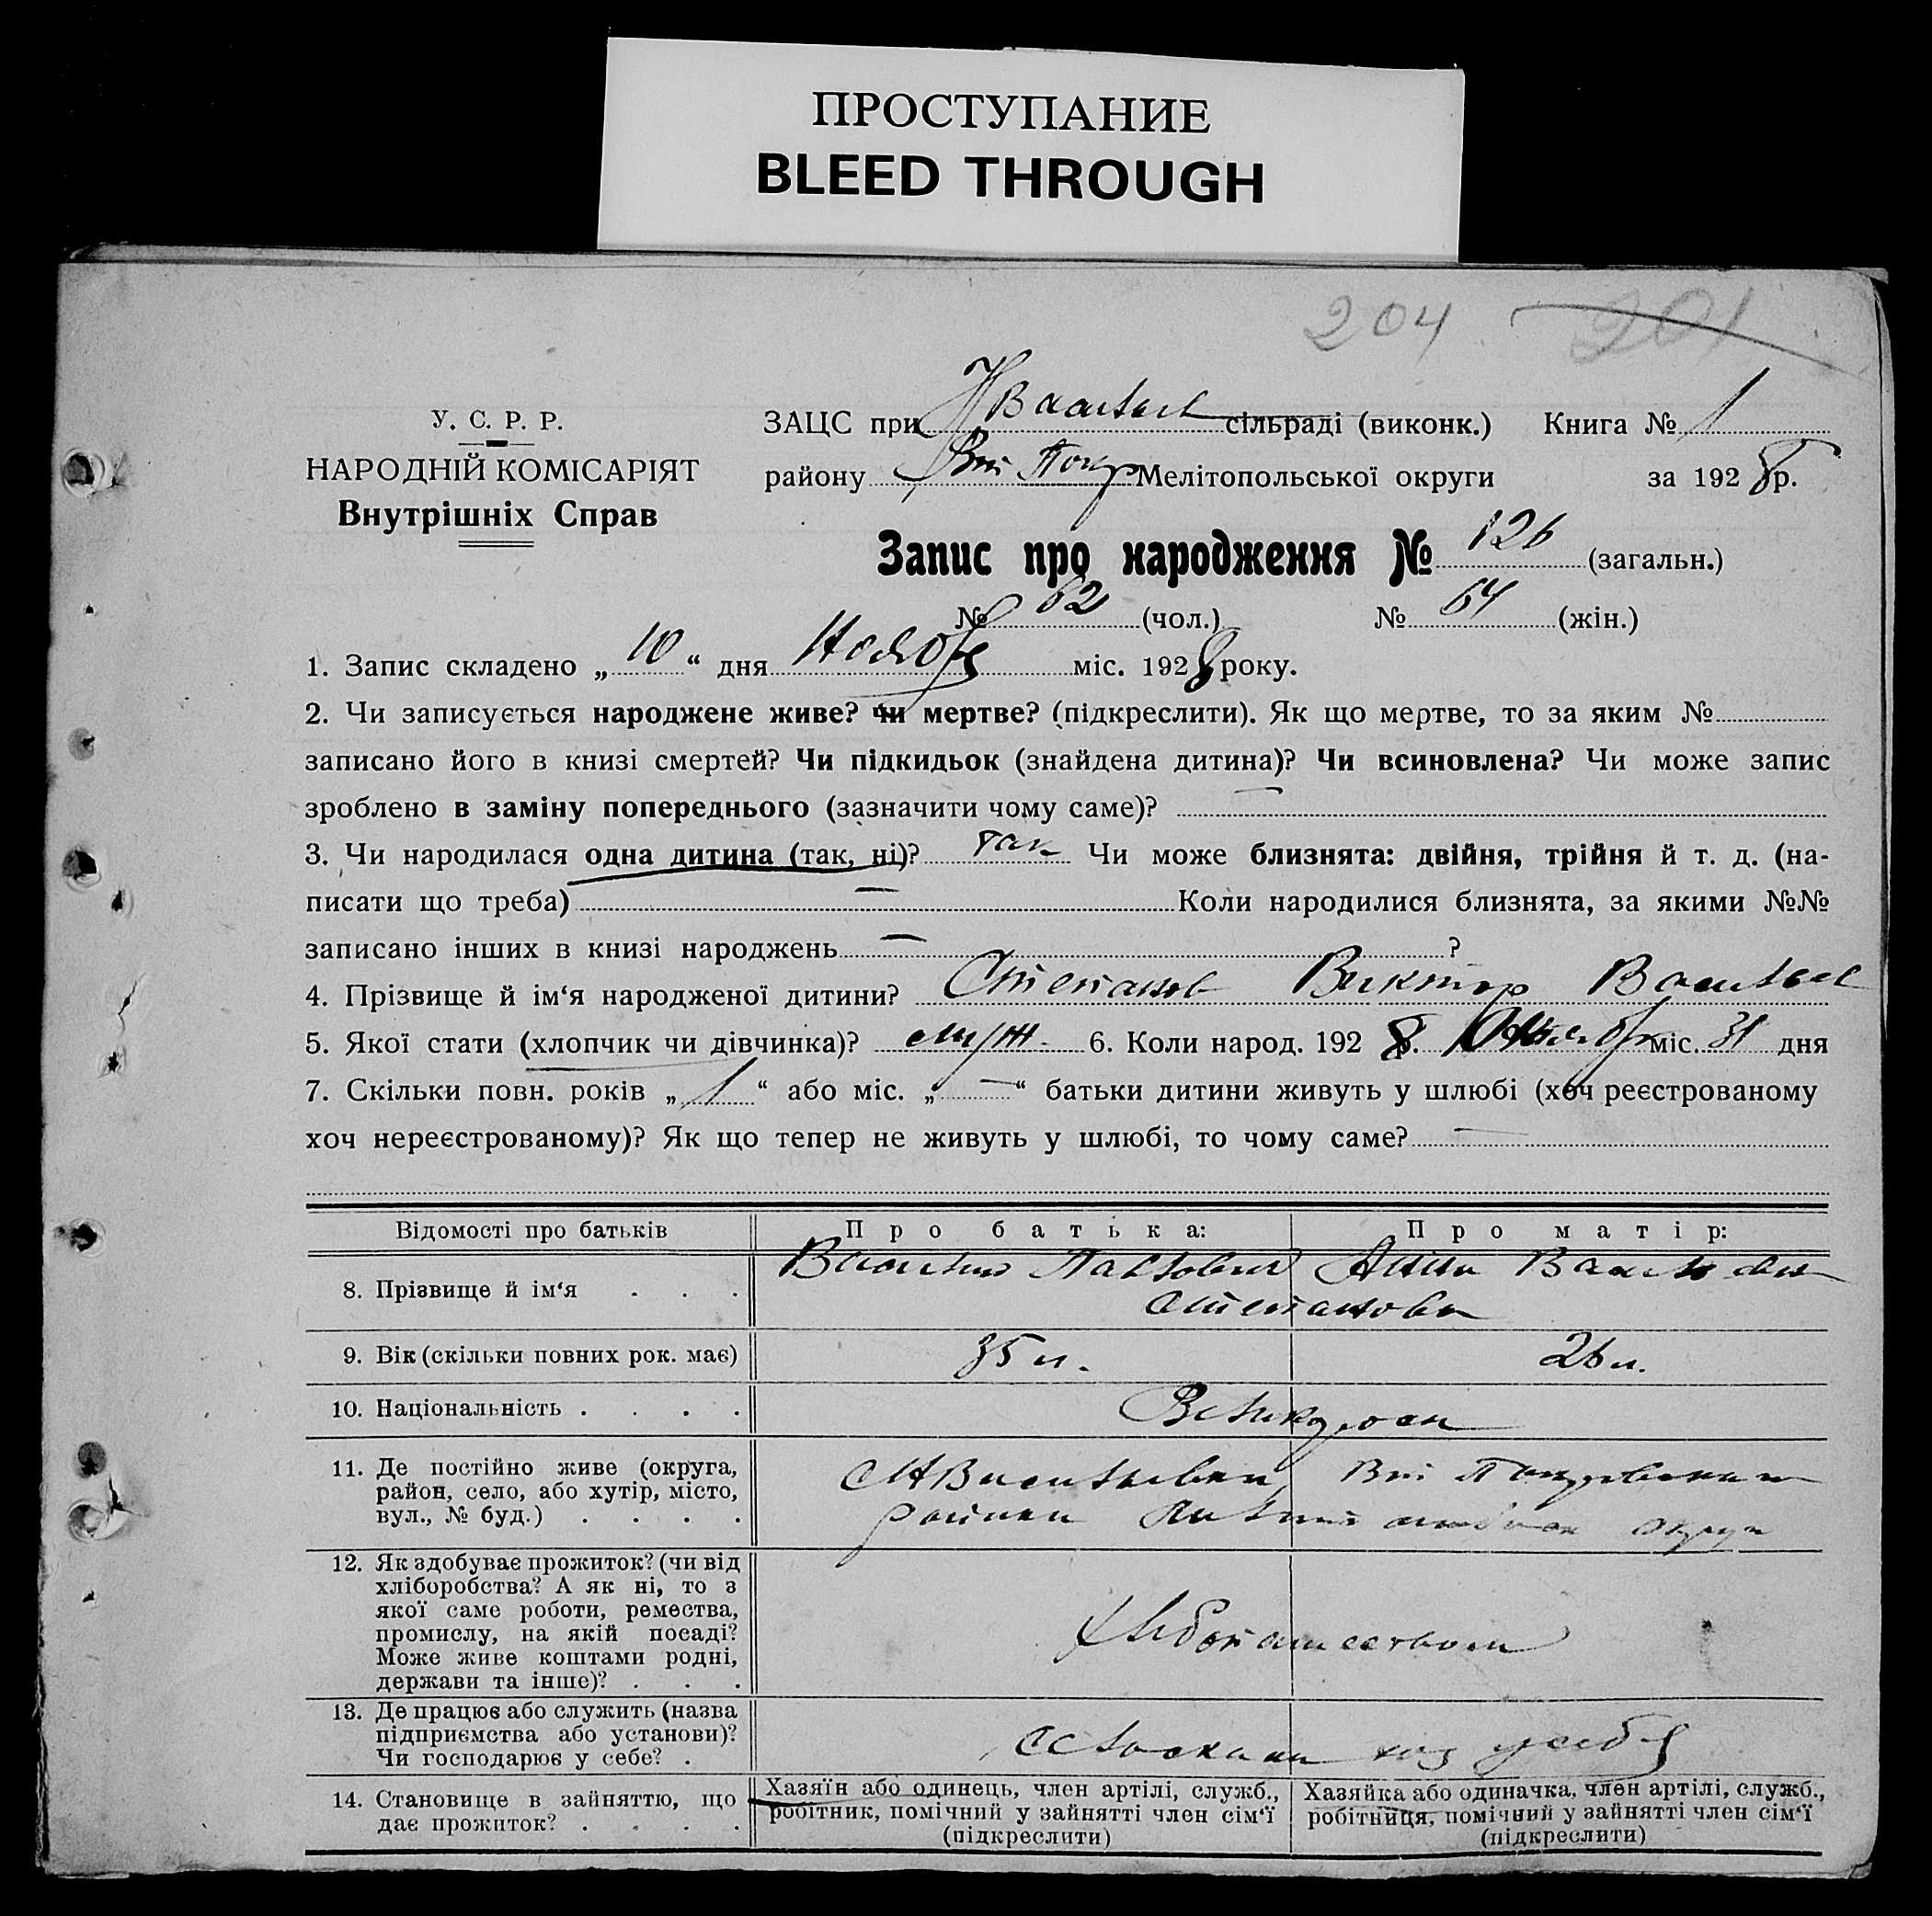 ПРОСТУПАНИЕ
BLEED THROUGH
204 201
У. С. Р. Р.
НАРОДНІЙ КОМІСАРІЯТ
Внутрішніх Справ
ЗАЦС при сільраді (виконк.) Книга № 1
району Мелітопольської округи за 1928 р.
Запис про народження № 126 (загальн.)
№ 62 (чол.) № 64 (жін.)
1. Запис складено „10“ дня Ноября міс. 1928 року.
2. Чи записується народжене живе? чи мертве? (підкреслити). Як що мертве, то за яким №
записано його в книзі смертей? Чи підкидьок (знайдена дитина)? Чи всиновлена? Чи може запис
зроблено в заміну попереднього (зазначити чому саме)? —
3. Чи народилася одна дитина (так, ні)? так Чи може близнята: двійня, трійня й т. д. (на-
писати що треба) — Коли народилися близнята, за якими №№
записано інших в книзі народжень — ?
4. Прізвище й ім‘я народженої дитини? Степанов Виктор
5. Якої стати (хлопчик чи дівчинка)? муж. 6. Коли народ. 1928 р. Октябр міс. 31 дня
7. Скільки повн. років „1“ або міс. „—“ батьки дитини живуть у шлюбі (хоч реєстрованому
хоч нереєстрованому)? Як що тепер не живуть у шлюбі, то чому саме? —
Відомості про батьків Про батька: Про матір:
8. Прізвище й ім‘я . . . Василий Павлович Анна
Степановы
9. Вік (скільки повних рок. має) 35 л. 26 л.
10. Національність . . . . Великоросы
11. Де постійно живе (округа,
район, село, або хутір, місто,
вул., № буд.) . . . .
12. Як здобуває прожиток? (чи від
хліборобства? А як ні, то з
якої саме роботи, ремества,
промислу, на якій посаді?
Може живе коштами родні,
держави та інше)? . . .
Хлебопашеством
13. Де працює або служить (назва
підприємства або установи)?
Чи господарює у себе? .
14. Становище в зайняттю, що
дає прожиток? . . . .
Хазяїн або одинець, член артілі, служб.,
робітник, помічний у зайнятті член сім‘ї
(підкреслити)
Хазяйка або одиначка, член артілі, служб.,
робітниця, помічний у зайнятті член сім‘ї
(підкреслити)